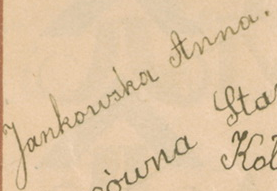 Jankowska Anna.
ówna Sta
Kol